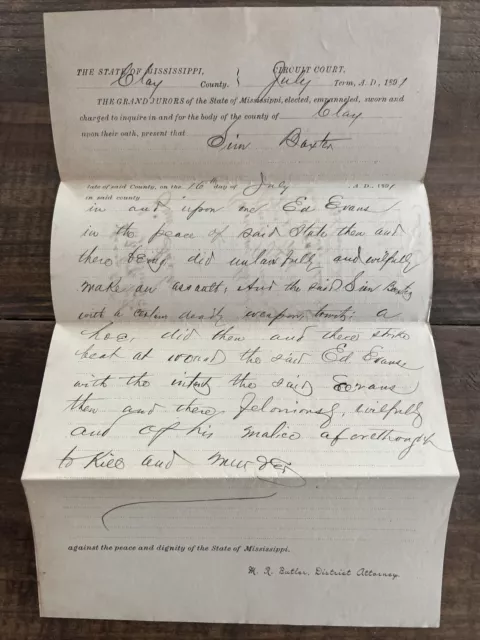 THE STATE OF MISSISSIPPI, CIRCUIT COURT,
Clay County. July Term, A. D., 1891
THE GRAND JURORS of the State of Mississippi, elected, empanneled, sworn and
charged to inquire in and for the body of the county of Clay
upon their oath, present that Sim Baxter
late of said County, on the 16th day of July A. D., 1891
in said county
in and upon one Ed Evans
in the peace of said State then and
there being did unlawfully and wilfully
make an assault, And the said Sim Baxter
with a certain deadly weapon, towit: a
hoe, did then and there strike
beat at wound the said Ed Evans
with the intent the said Evans
then and there feloniously, wilfully
and of his malice aforethought
to kill and murder
against the peace and dignity of the State of Mississippi.
M. R. Butler, District Attorney.